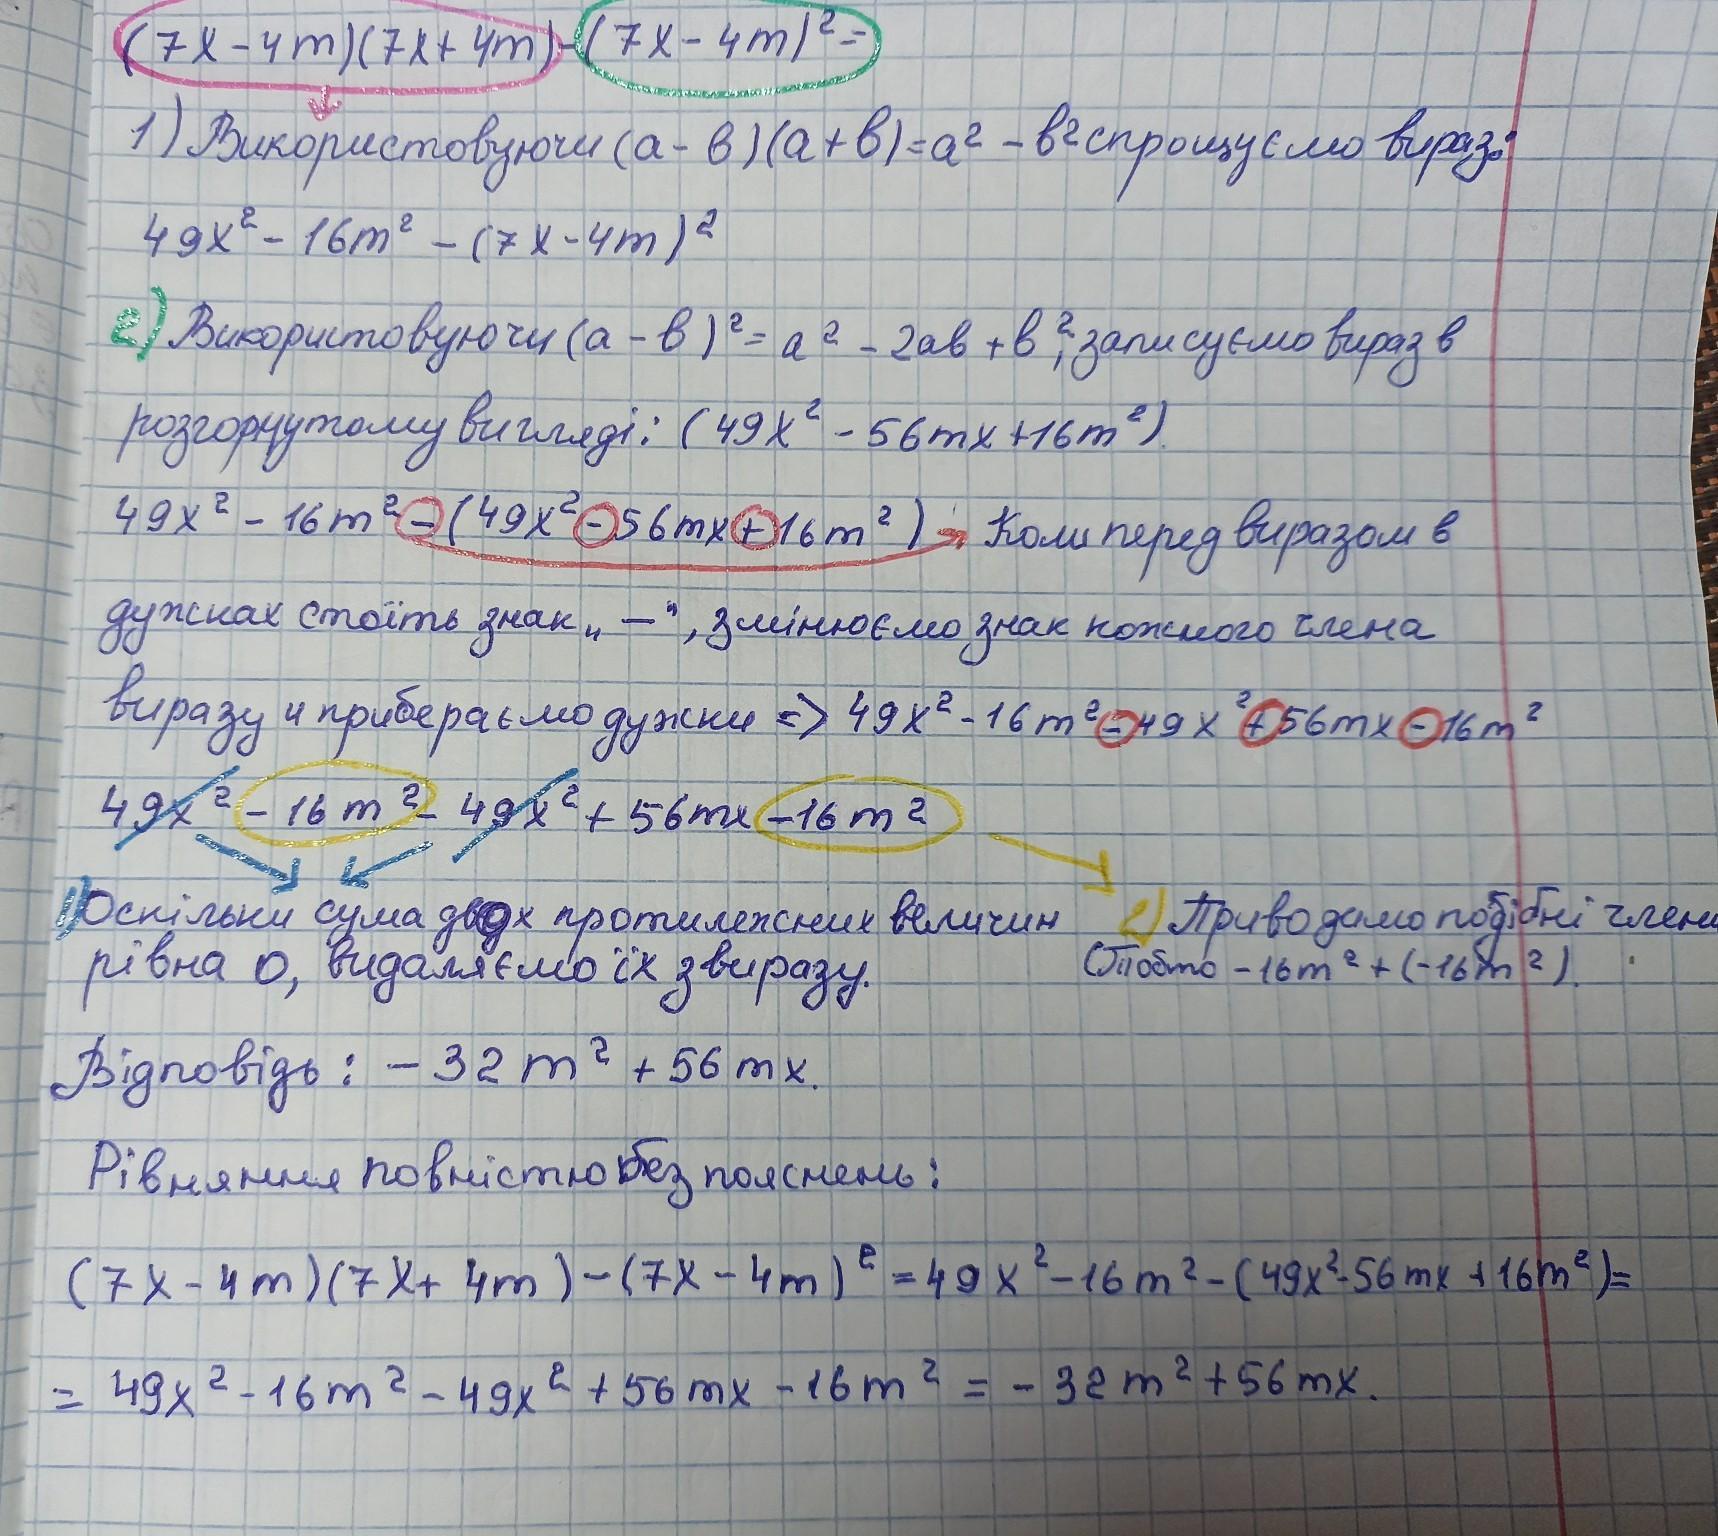 (7x-4m)(7x+4m)-(7x-4m)²=
1) Використовуючи (a-в)(a+в)=a²-в² спрощуємо вираз:
49x²-16m²-(7x-4m)²
2) Використовуючи (a-в)²=a²-2ав+в², записуємо вираз в
розгорнутому вигляді: (49x²-56mx+16m²).
49x²-16m²-(49x²-56mx+16m²) → Коли перед виразом в
дужках стоїть знак „—", змінюємо знак кожного члена
виразу и прибераємо дужки => 49x²-16m²-49x²+56mx-16m²
49x²-16m²-49x²+56mx-16m²
1) Оскільки сума двох протилежних величин
рівна 0, видаляємо їх з виразу.
2) Приводимо подібні члени
(Тобто -16m²+(-16m²).
Відповідь: -32m²+56mx.
Рівняння повністю без пояснень:
(7x-4m)(7x+4m)-(7x-4m)²=49x²-16m²-(49x²-56mx+16m²)=
=49x²-16m²-49x²+56mx-16m²=-32m²+56mx.